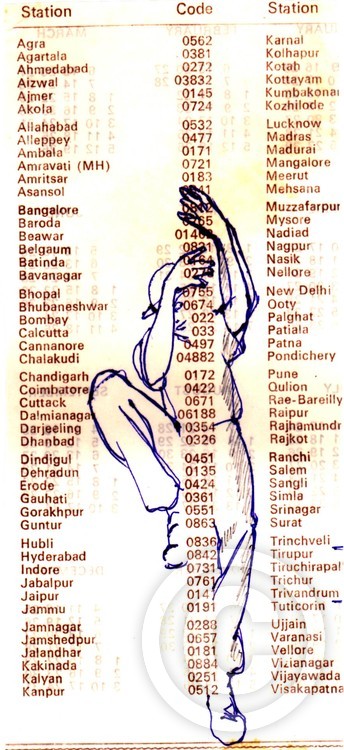 Station Code Station
Agra 0562 Karnal
Agartala 0381 Kolhapur
Ahmedabad 0272 Kotah
Aizwal 03832 Kottayam
Ajmer 0145 Kumbakona
Akola 0724 Kozhilode
Allahabad 0532 Lucknow
Alleppey 0477 Madras
Ambala 0171 Madurai
Amravati (MH) 0721 Mangalore
Amritsar 0183 Meerut
Asansol Mehsana
Bangalore Muzzafarpur
Baroda Mysore
Beawar Nadiad
Belgaum 0831 Nagpur
Batinda Nasik
Bavanagar Nellore
Bhopal 0755 New Delhi
Bhubaneshwar 0674 Ooty
Bombay 022 Palghat
Calcutta 033 Patiala
Cannanore 0497 Patna
Chalakudi 04882 Pondichery
Chandigarh 0172 Pune
Coimbatore 0422 Qulion
Cuttack 0671 Rae-Bareilly
Dalmianagar 06188 Raipur
Darjeeling 0354 Rajhamundr
Dhanbad 0326 Rajkot
Dindigul 0451 Ranchi
Dehradun 0135 Salem
Erode 0424 Sangli
Gauhati 0361 Simla
Gorakhpur 0551 Srinagar
Guntur 0863 Surat
Hubli 0836 Trinchveli
Hyderabad 0842 Tirupur
Indore 0731 Tiruchirapal
Jabalpur 0761 Trichur
Jaipur 014 Trivandrum
Jammu 0191 Tuticorin
Jamnagar 0288 Ujjain
Jamshedpur 0657 Varanasi
Jalandhar 0181 Vellore
Kakinada 0884 Vizianagar
Kalyan 0251 Vijayawada
Kanpur 0512 Visakapatna